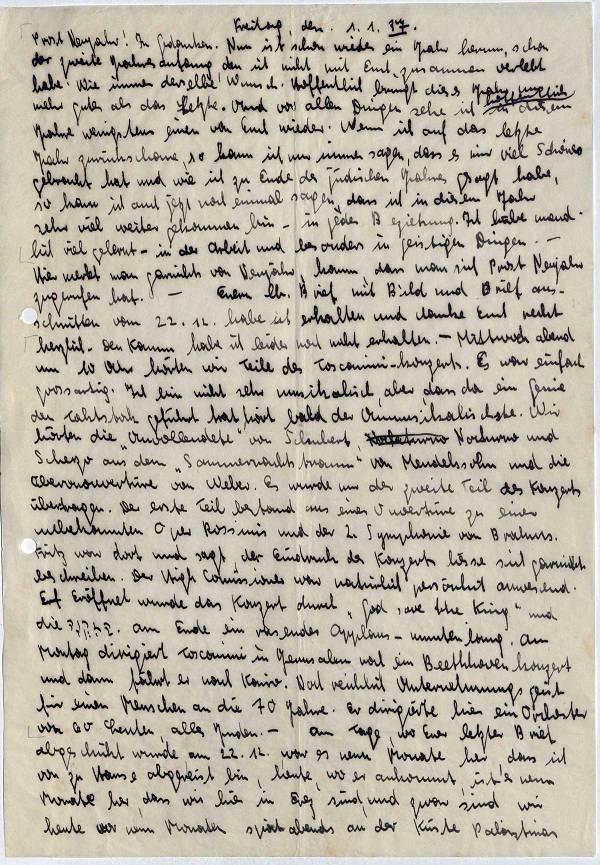 Freitag, den 1.1.37.
Prost Neujahr! In Gedanken. Nun ist schon wieder ein Jahr herum, schon
der zweite Jahresanfang den ich nicht mit Euch zusammen verlebt
habe. Wie immer derselbe Wunsch. Hoffentlich bringt dieses Jahr
mehr gutes als das Letzte. Und vor allen Dingen sehe ich hoffentlich in diesem
Jahre wenigstens einen von Euch wieder. Wenn ich auf das letzte
Jahr zurückschaue, so kann ich nur immer sagen, dass es mir viel Schönes
gebracht hat und wie ich zu Ende des jüdischen Jahres gesagt habe,
so kann ich auch jetzt noch einmal sagen, dass ich in diesem Jahr
sehr viel weiter gekommen bin - in jeder Beziehung. Ich habe
viel gelernt - in der Arbeit und besonders in geistigen Dingen. -
Hier merkt man garnichts von Neujahr, kaum dass man sich Prost Neujahr
zugerufen hat. - Euern lb. Brief mit Bild und Brief aus-
schnitten vom 22.12. habe ich erhalten und danke Euch recht
herzlich. Den Kamm habe ich leider noch nicht erhalten. - Mittwoch abend
um 10 Uhr hörten wir Teile des Toscanini-Konzerts. Es war einfach
grossartig. Ich bin nicht sehr musikalisch, aber dass da ein Genie
den Taktstock geführt hat hört bald der Unmusikalischste. Wir
hörten die "Unvollendete" von Schubert, Nocturno und
Scherzo aus dem "Sommernachtstraum" von Mendelssohn und die
Oberonouvertüre von Weber. Es wurde nur der zweite Teil des Konzerts
übertragen. Der erste Teil bestand aus einer Ouvertüre zu einer
unbekannten Oper Rossinis und der 2. Symphonie von Brahms.
Fritz war dort und sagt, der Eindruck des Konzerts liesse sich garnicht
beschreiben. Der High Comissioner war natürlich persönlich anwesend.
Eröffnet wurde das Konzert durch "God save the King" und
die התקוה. Am Ende ein rasender Applaus - minutenlang. Am
Montag dirigiert Toscanini in Jerusalem noch ein Beethovenkonzert
und dann fährt er nach Kairo. Noch reichlich Unternehmungsgeist
für einen Menschen an die 70 Jahre. Er dirigierte hier ein Orchester
von 60 Leuten, alles Juden. - Am Tage, wo Euer letzter Brief
abgeschickt wurde am 22.12. war es neun Monate her, dass ich
von zu Hause abgereist bin, heute, wo er ankommt, ist es neun
Monate her, dass wir hier in Erez sind, und zwar sind wir
heute vor neun Monaten spätabends an der Küste Palästinas